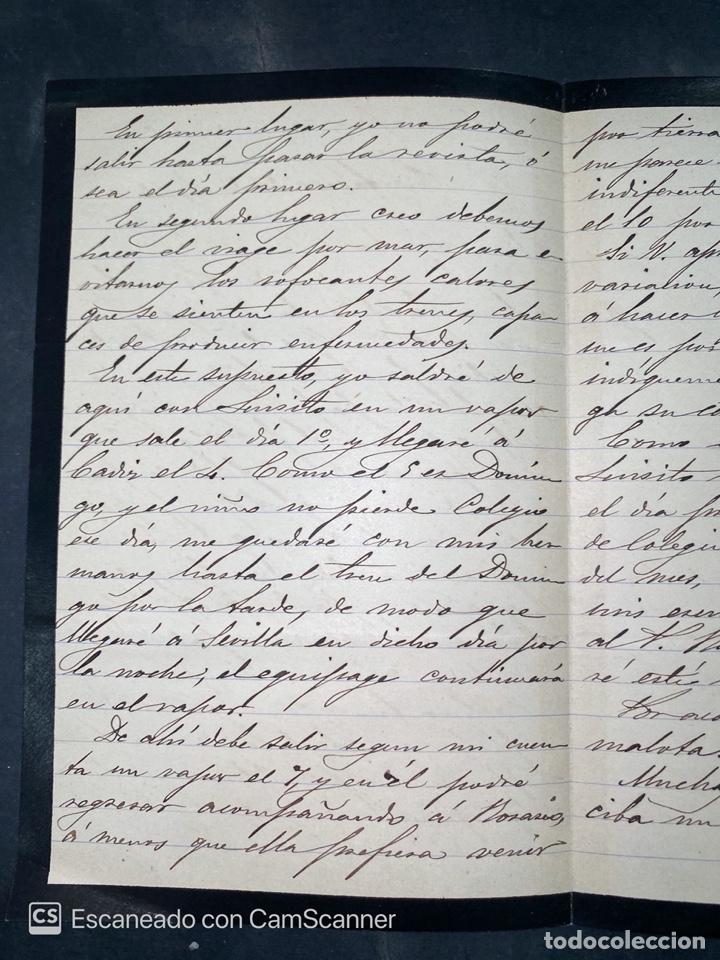 En primer lugar, yo no podré
salir hasta pasar la revista, ó
sea el día primero.
En segundo lugar creo debemos
hacer el viage por mar, para e
vitarnos los sofocantes calores
que se sienten en los trenes, capa-
ces de producir enfermedades.
En este supuesto, yo saldré de
aquí con Luisito en un vapor
que sale el día 1º, y llegaré á
Cadiz el 4. Como el 5 es Domin
go, y el niño no pierde Colegio
ese día, me quedaré con mis her
manos hasta el tren del Domin
go por la tarde, de modo que
llegaré á Sevilla en dicho día por
la noche; el equipage continuará
en el vapor.
De ahí debe salir segun mi cuen
ta un vapor el 7, y en él podré
regresar acompañando á Rosario,
á menos que ella prefiera venir
por tierra
me parece
indiferente
el 10 por
Si V. apr
variacion,
á hacer
me es pos
indíqueme
ga su
Como
Luisito
el día pr
de Colegi
del mes,
al P.
ré este
Por
malota.
Mucha
ciba un
CS Escaneado con CamScanner
todocoleccion